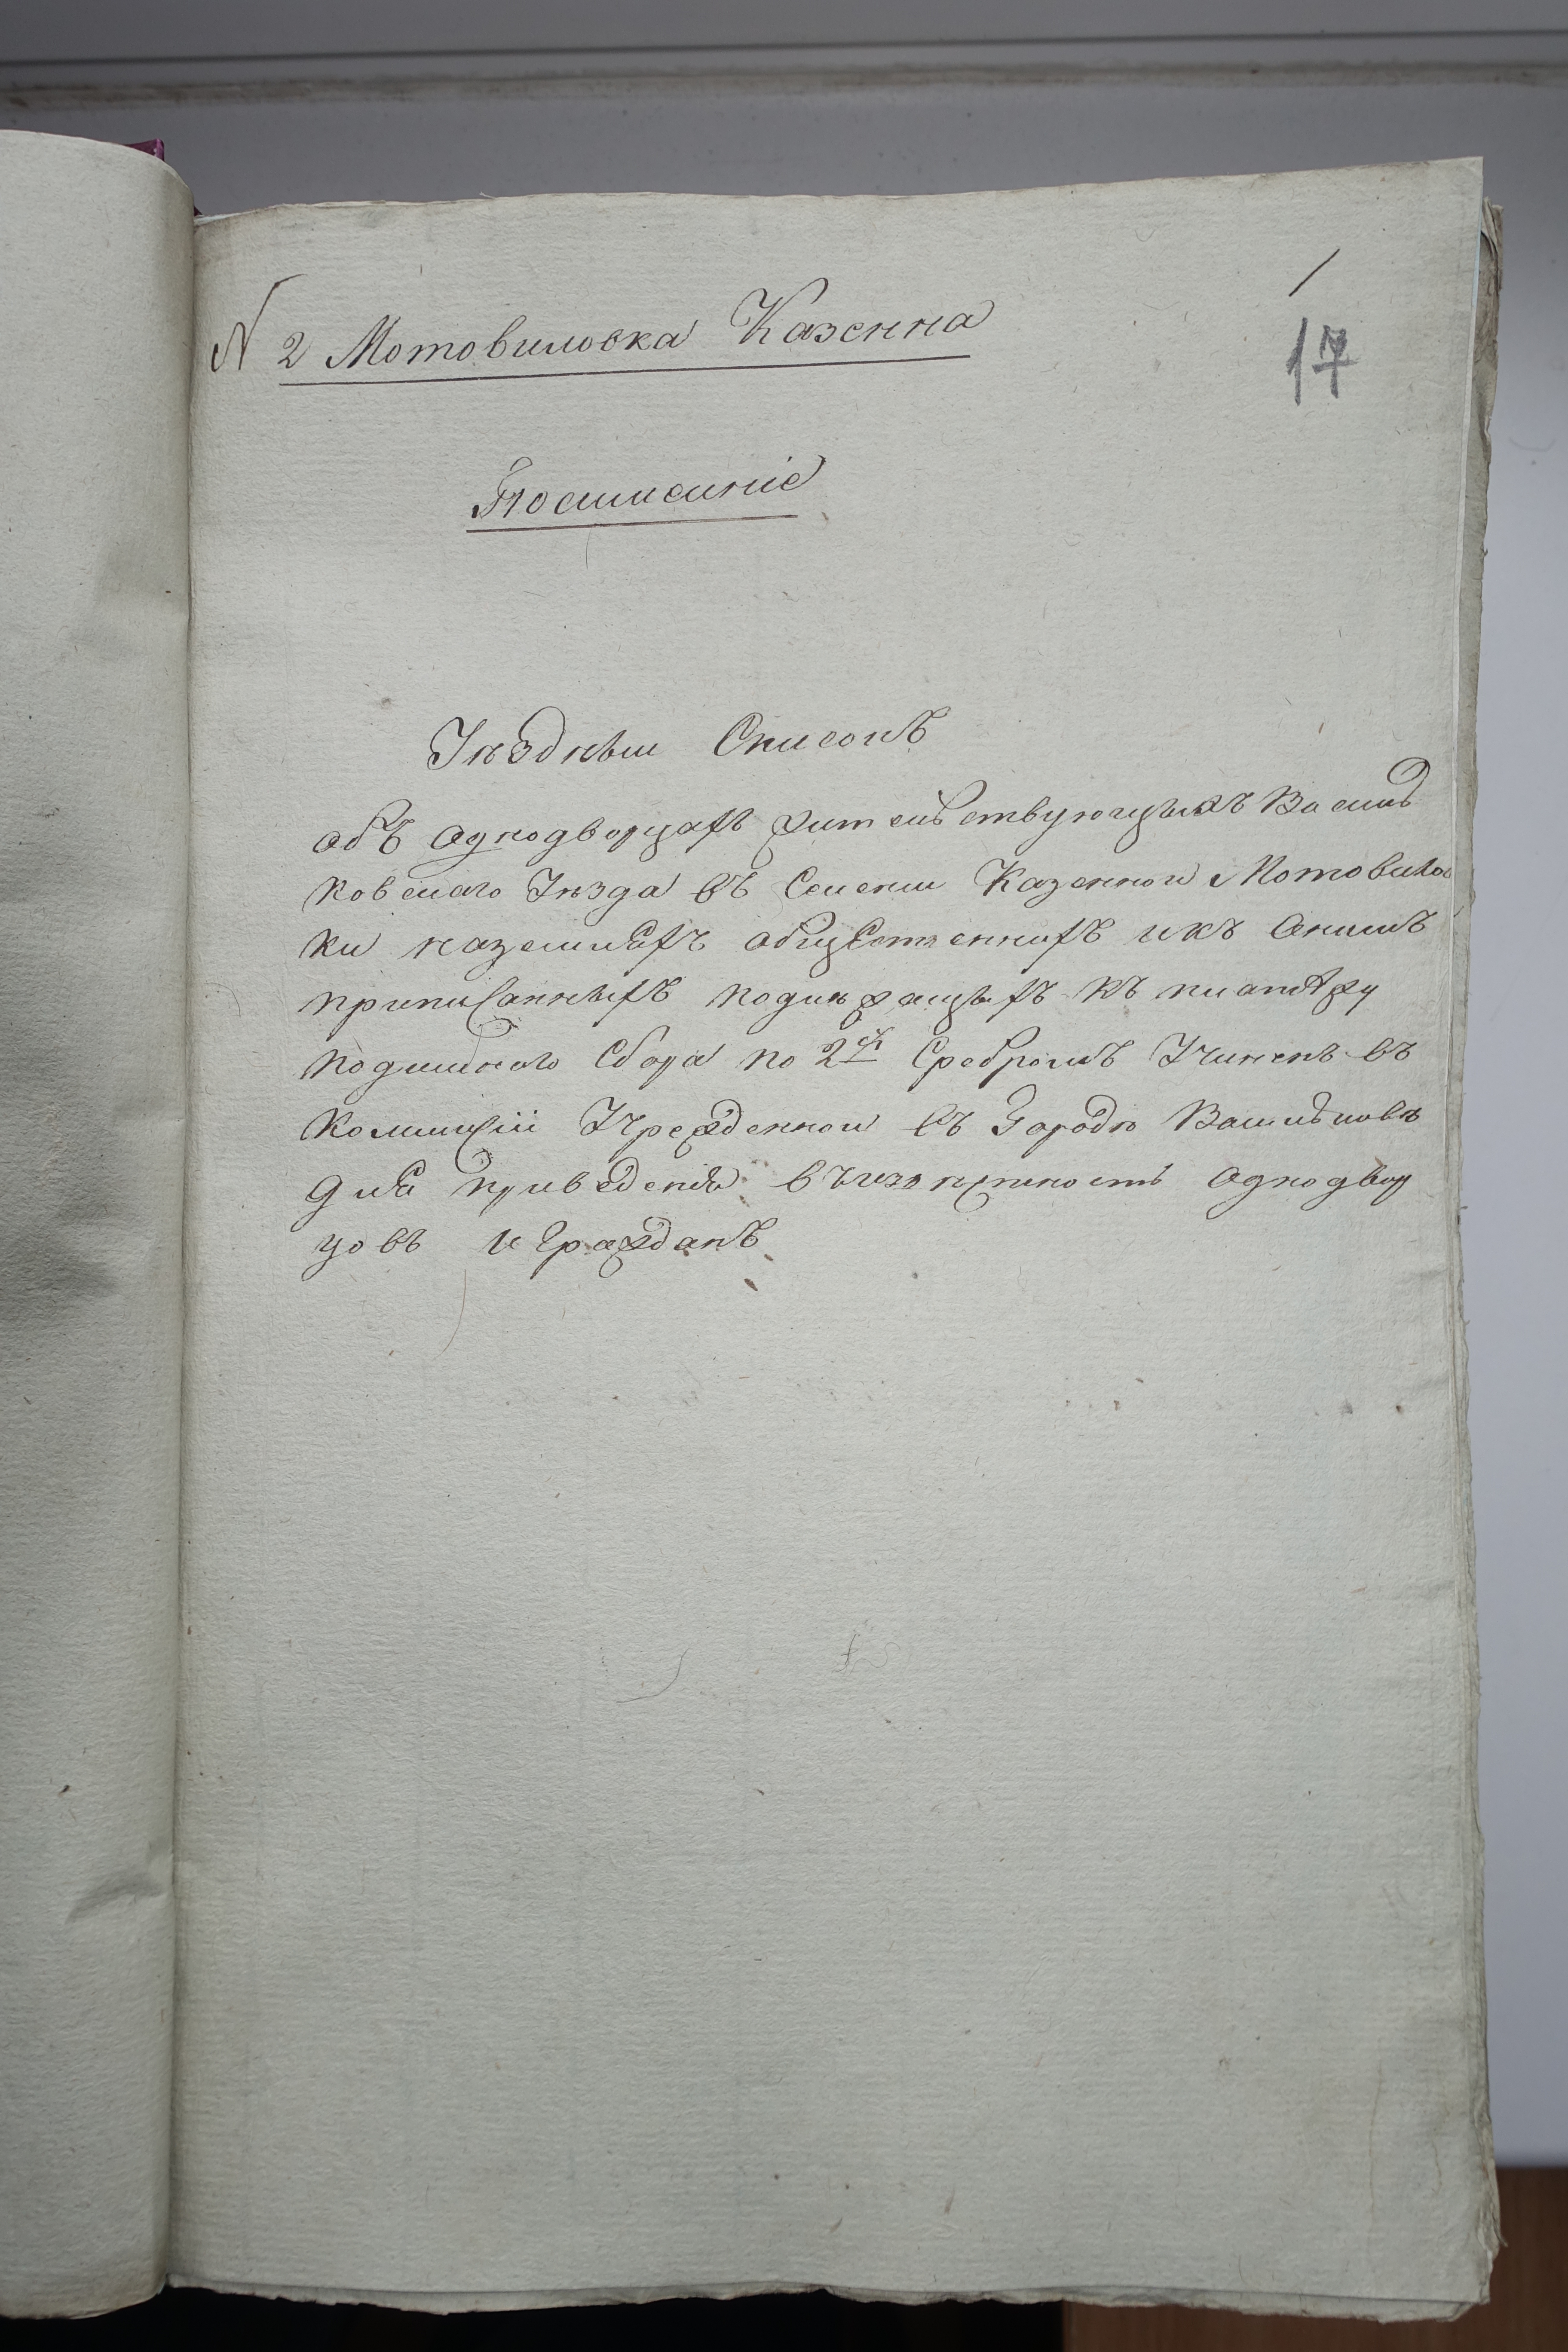 /
17
N 2 Мотовиловка Казенна
Посписаніе
Уѣздный Списокъ
объ однодворцахъ жительствующыхъ Василь
ковскаго Уѣзда въ Селении Казенной Мотовилов
ки казенныхъ общественныхъ и къ онымъ
приписанныхъ подлѣжащыхъ къ платѣжу
подимнаго Сбора по 2 Сребромъ Учиненъ въ
Коммисіи Учрежденной въ Городѣ Васильковѣ
для приведенія въ Однодвор
цовъ и Гражданъ